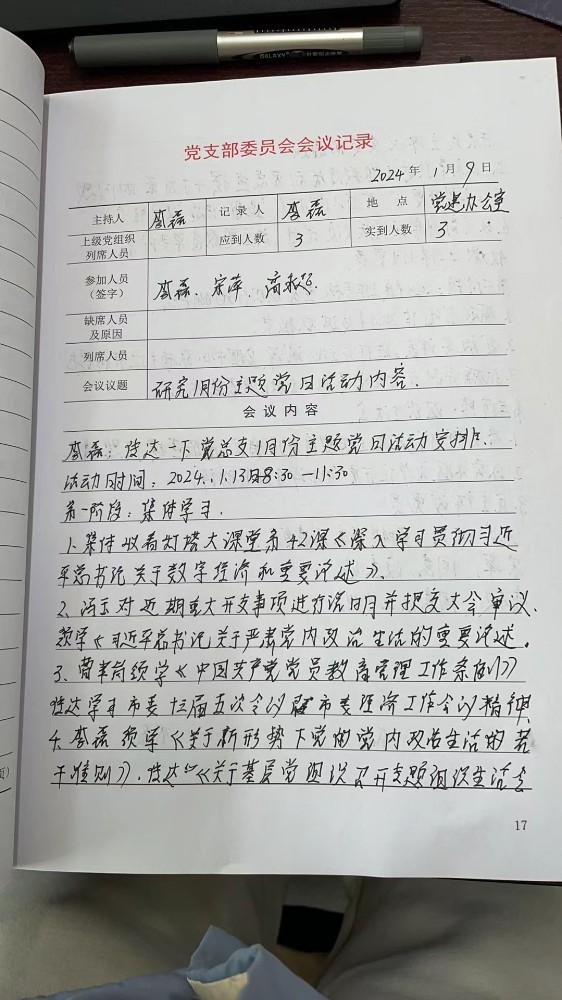 GALAXY
党支部委员会会议记录
2024 年 1 月 9 日
主持人 李磊 记录人 李磊 地点 党建办公室
上级党组织列席人员 应到人数 3 实到人数 3
参加人员（签字） 李磊、宋萍、高
缺席人员及原因
列席人员
会议议题 研究1月份主题党日活动内容.
会议内容
李磊：传达一下党总支1月份主题党日活动安排.
活动时间：2024.1.13日8:30—11:30
第一阶段：集体学习.
1.集体收看灯塔大课堂第42课《深入学习贯彻习近
平总书记关于数字经济和重要论述》.
2、冯玉对近期重大开支事项进行说明并提交大会审议、
领学《习近平总书记关于严肃党内政治生活的重要论述.
3、曹 领学《中国共产党党员教育管理工作条例》
传达学习市委十三届五次会议 市委经济工作会议精神
4.李磊领学《关于新形势下党的党内政治生活的若
干准则》.传达《关于基层党组织召开专题组织生活会
17